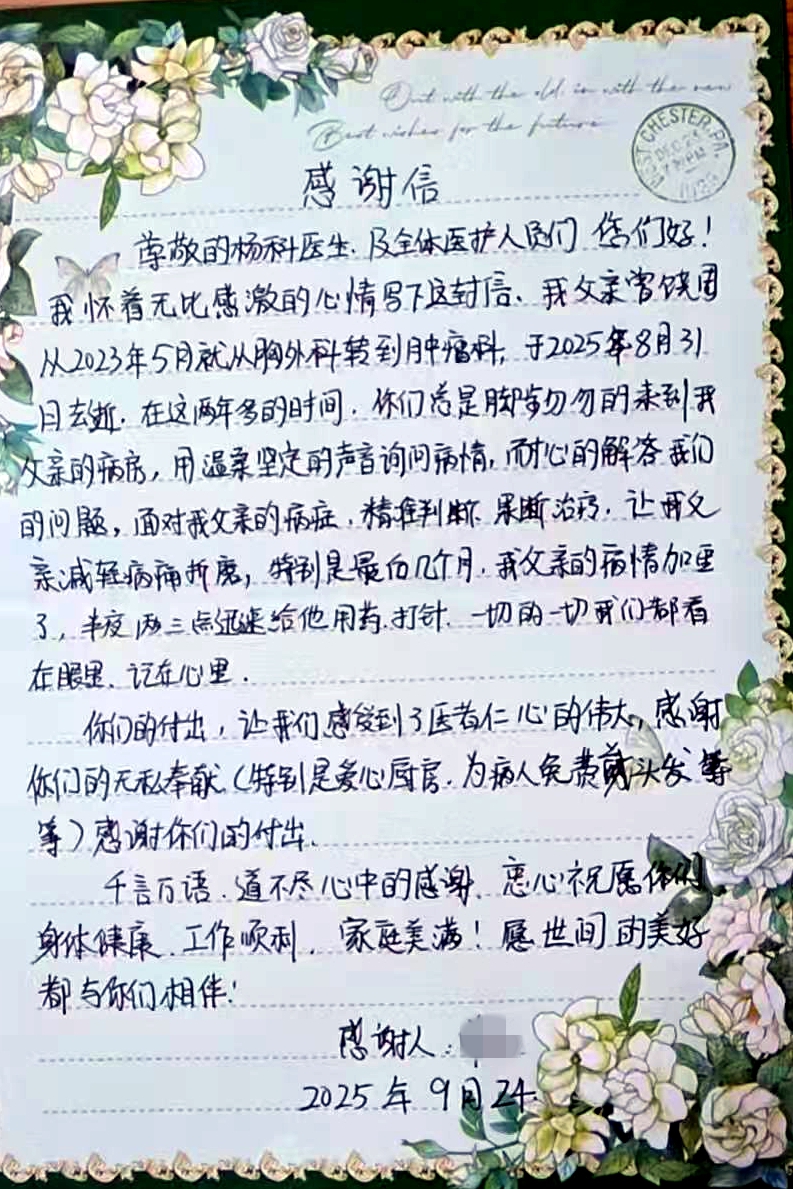 Out with the old in with the new
Best wishes for the future
CHESTER, PA.
感谢信
尊敬的杨科医生、及全体医护人员们 您们好！
我怀着无比感激的心情写下这封信、我父亲曾饶周
从2023年5月就从胸外科转到肿瘤科，于2025年8月31
日去逝、在这两年多的时间、你们总是脚步匆匆的来到我
父亲的病房，用温柔坚定的声音询问病情，耐心的解答我们
的问题，面对我父亲的病症、精准判断、果断治疗、让我父
亲减轻病痛折磨，特别是最后几个月、我父亲的病情加重
了，半夜两三点还来给他用药、打针、一切的一切我们都看
在眼里、记在心里．
你们的付出，让我们感受到了医者仁心的伟大，感谢
你们的无私奉献（特别是爱心厨房、为病人免费剪头发等
等）感谢你们的付出．
千言万语、道不尽心中的感谢、衷心祝愿你们
身体健康、工作顺利、家庭美满！愿世间的美好
都与你们相伴！
感谢人：
2025年9月24．